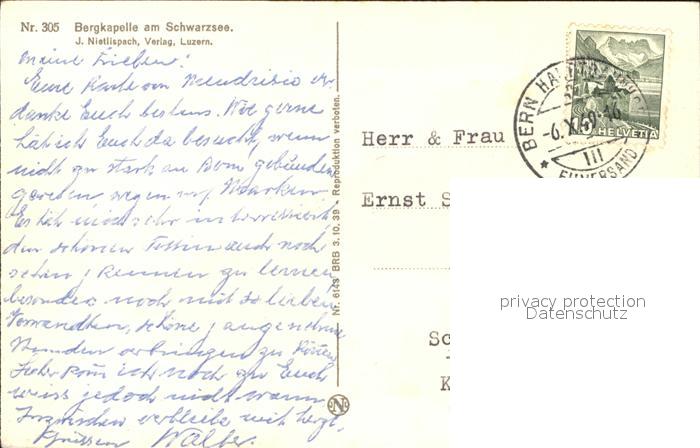 Nr. 305 Bergkapelle am Schwarzsee.
J. Nietlispach, Verlag, Luzern.
Meine Lieben!
Eure Karte von Mendrisio ver-
danke Euch bestens. Wie gerne
hät ich Euch da besucht, wenn
nicht zu stark an Bern gebunden
gewesen wegen
Es hät mich sehr interressiert
den schönen Tessin auch noch
sehen & kennen zu lernen
besonders noch mit so lieben
Verwandten, schöne & angenehme
Stunden verbringen zu können
ich noch zu Euch
weiss jedoch nicht wann
Inzwischen verbleibe mit herzl.
Grüssen Walter.
Nr. 6143 BRB 3. 10. 39 - Reproduktion verboten.
N
HELVETIA
BERN
III
Herr & Frau
Ernst S
Sc
K
privacy protection
Datenschutz